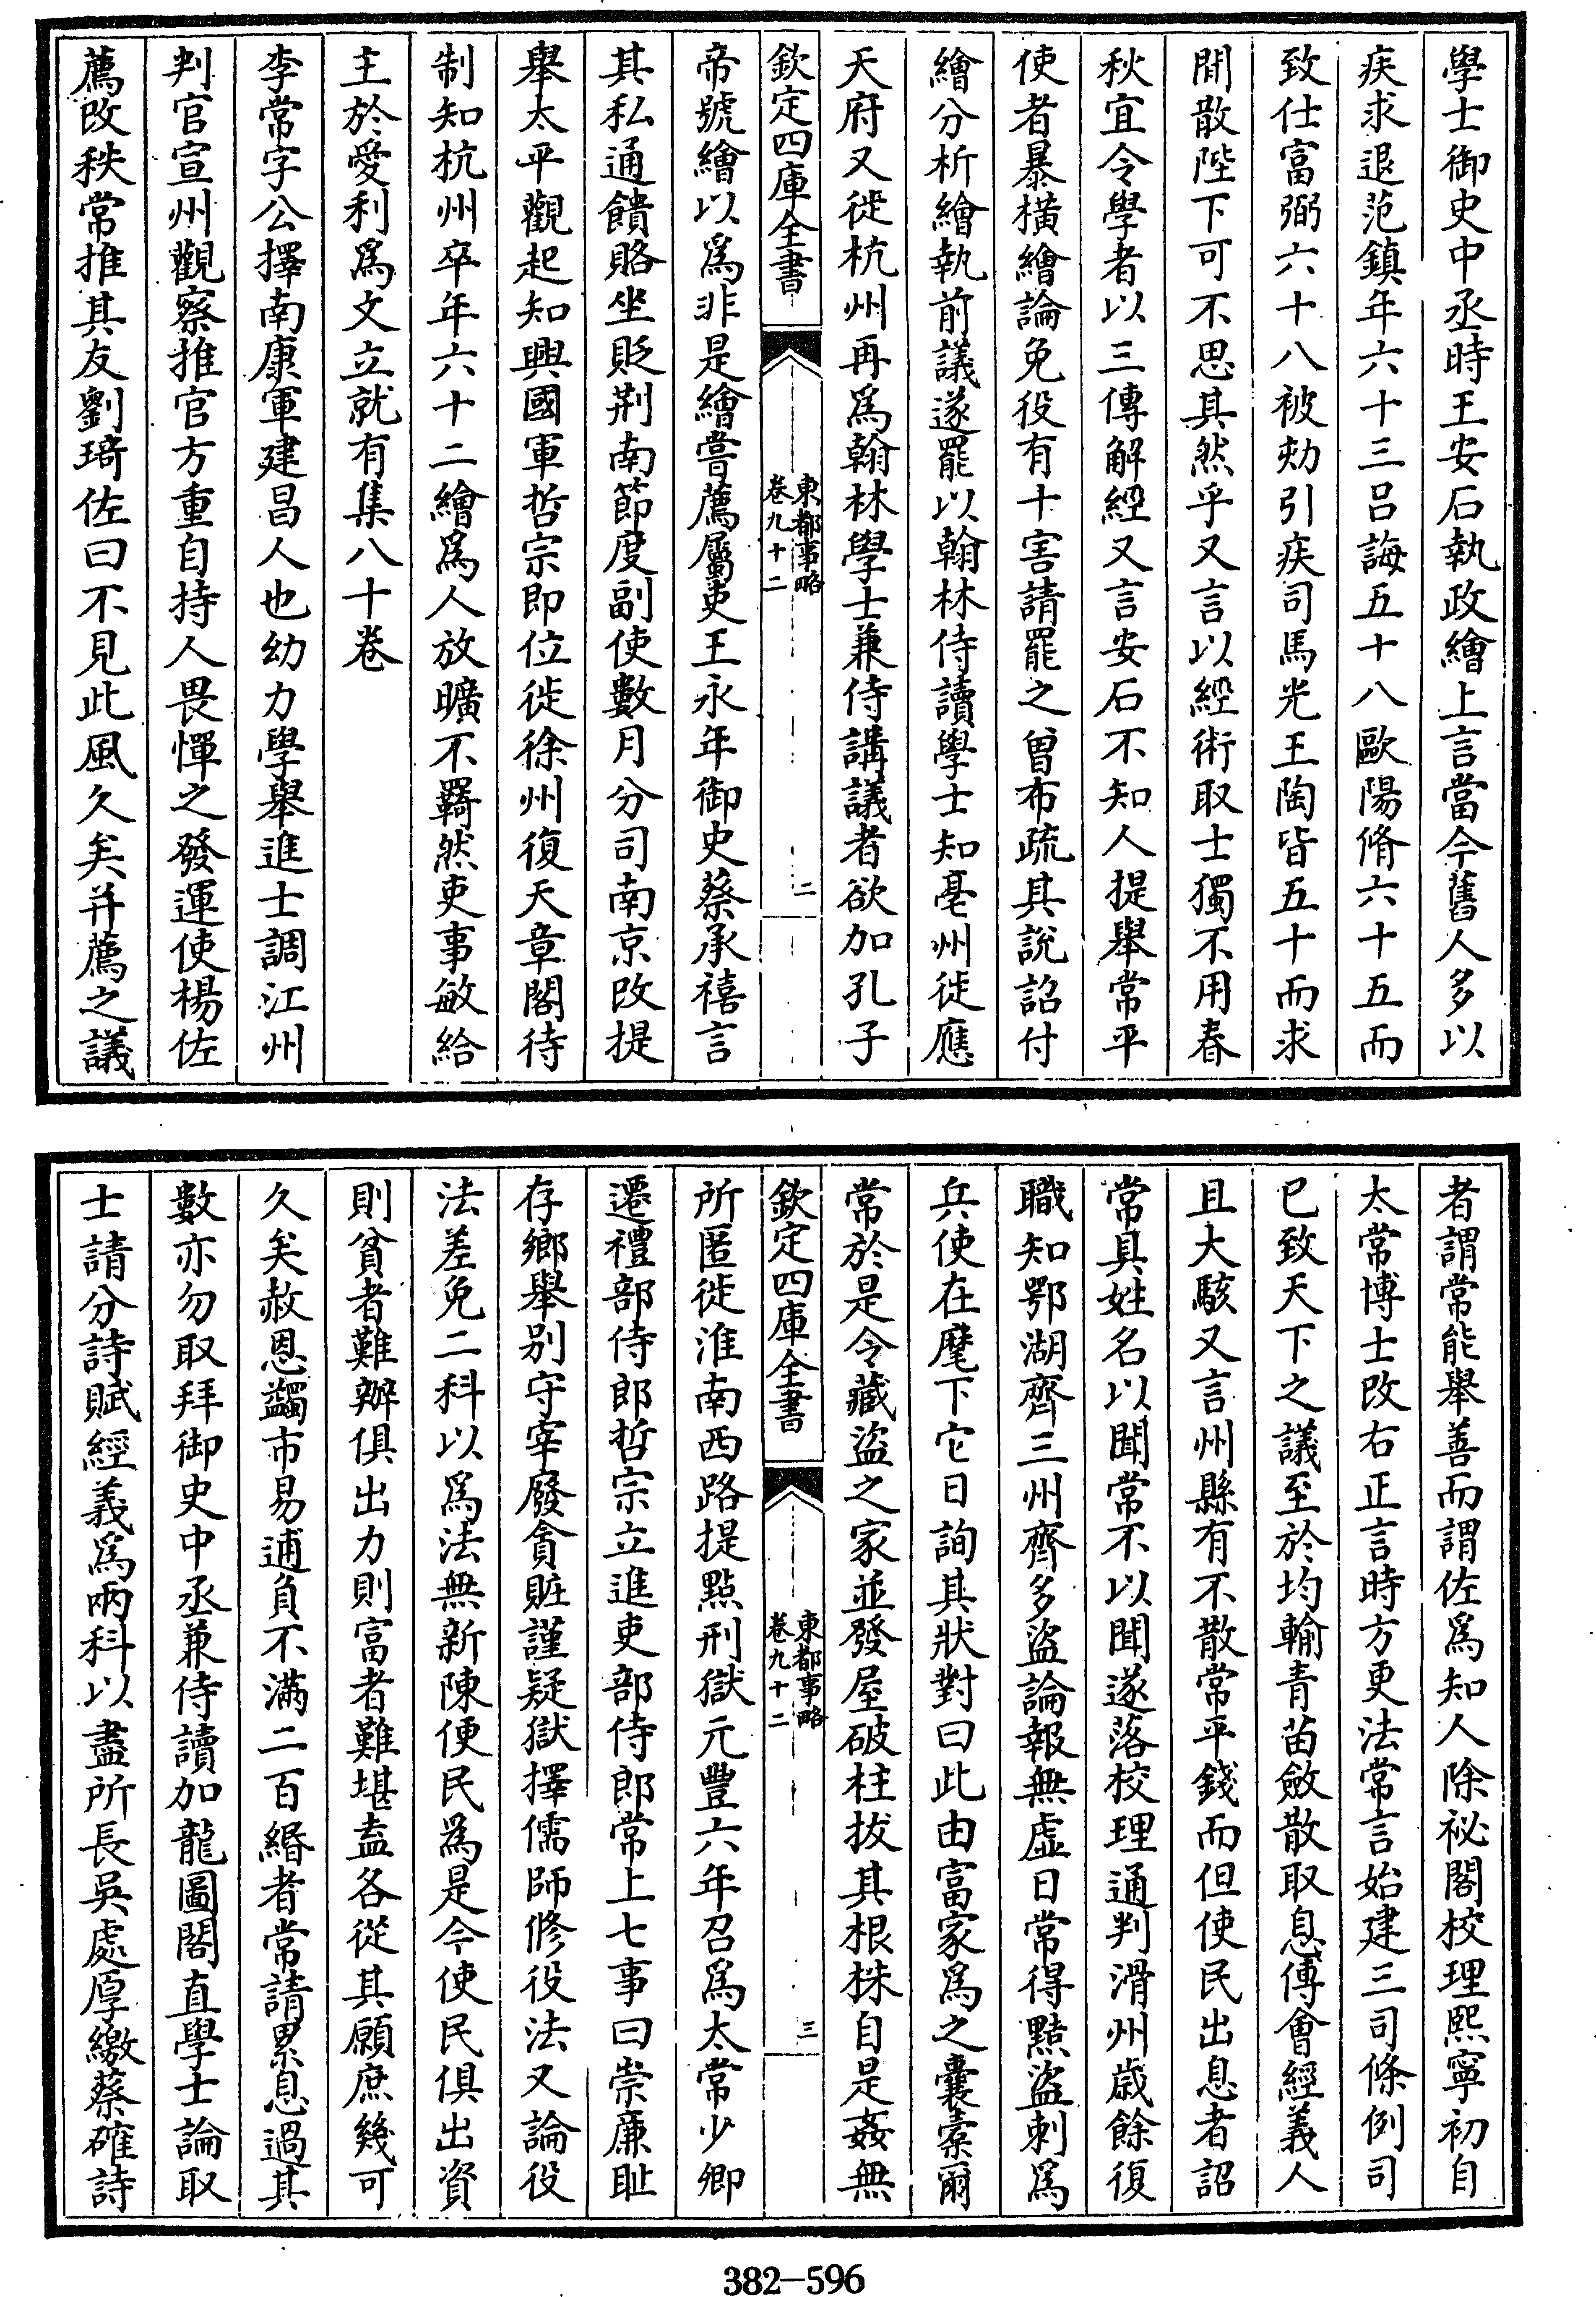 學士御史中丞時王安石執政繪上言當今舊人多以
疾求退范鎮年六十三呂誨五十八歐陽脩六十五而
致仕富弼六十八被劾引疾司馬光王陶皆五十而求
閒散陛下可不思其然乎又言以經術取士獨不用春
秋宜令學者以三傳解經又言安石不知人提舉常平
使者暴橫繪論免役有十害請罷之曽布疏其說詔付
繪分析繪執前議遂罷以翰林侍讀學士知亳州徙應
天府又徙杭州再為翰林學士兼侍講議者欲加孔子
欽定四庫全書
東都事略
卷九十二
二
帝號繪以為非是繪嘗薦屬吏王永年御史蔡承禧言
其私通饋賂坐貶荆南節度副使數月分司南京改提
舉太平觀起知興國軍哲宗即位徙徐州復天章閣待
制知杭州卒年六十二繪為人放曠不羈然吏事敏給
主於愛利為文立就有集八十卷
李常字公擇南康軍建昌人也幼力學舉進士調江州
判官宣州觀察推官方重自持人畏憚之發運使楊佐
薦改秩常推其友劉琦佐曰不見此風久矣并薦之議
者謂常能舉善而謂佐為知人除祕閣校理熙寧初自
太常博士改右正言時方更法常言始建三司條例司
已致天下之議至於均輸青苗斂散取息傅會經義人
且大駭又言州縣有不散常平錢而但使民出息者詔
常具姓名以聞常不以聞遂落校理通判滑州歳餘復
職知鄂湖齊三州齊多盜論報無虚日常得黠盜刺為
兵使在麾下它日詢其狀對曰此由富家為之囊橐爾
常於是令藏盜之家並發屋破柱拔其根株自是姦無
欽定四庫全書
東都事略
卷九十二
三
所匿徙淮南西路提點刑獄元豐六年召為太常少卿
遷禮部侍郎哲宗立進吏部侍郎常上七事曰崇廉恥
存鄉舉别守宰廢貪贓謹疑獄擇儒師修役法又論役
法差免二科以為法無新陳便民為是今使民俱出資
則貧者難辦俱出力則富者難堪盍各從其願庶幾可
久矣赦恩蠲市易逋負不滿二百緡者常請累息過其
數亦勿取拜御史中丞兼侍讀加龍圖閣直學士論取
士請分詩賦經義為兩科以盡所長吳處厚繳蔡確詩
382—596